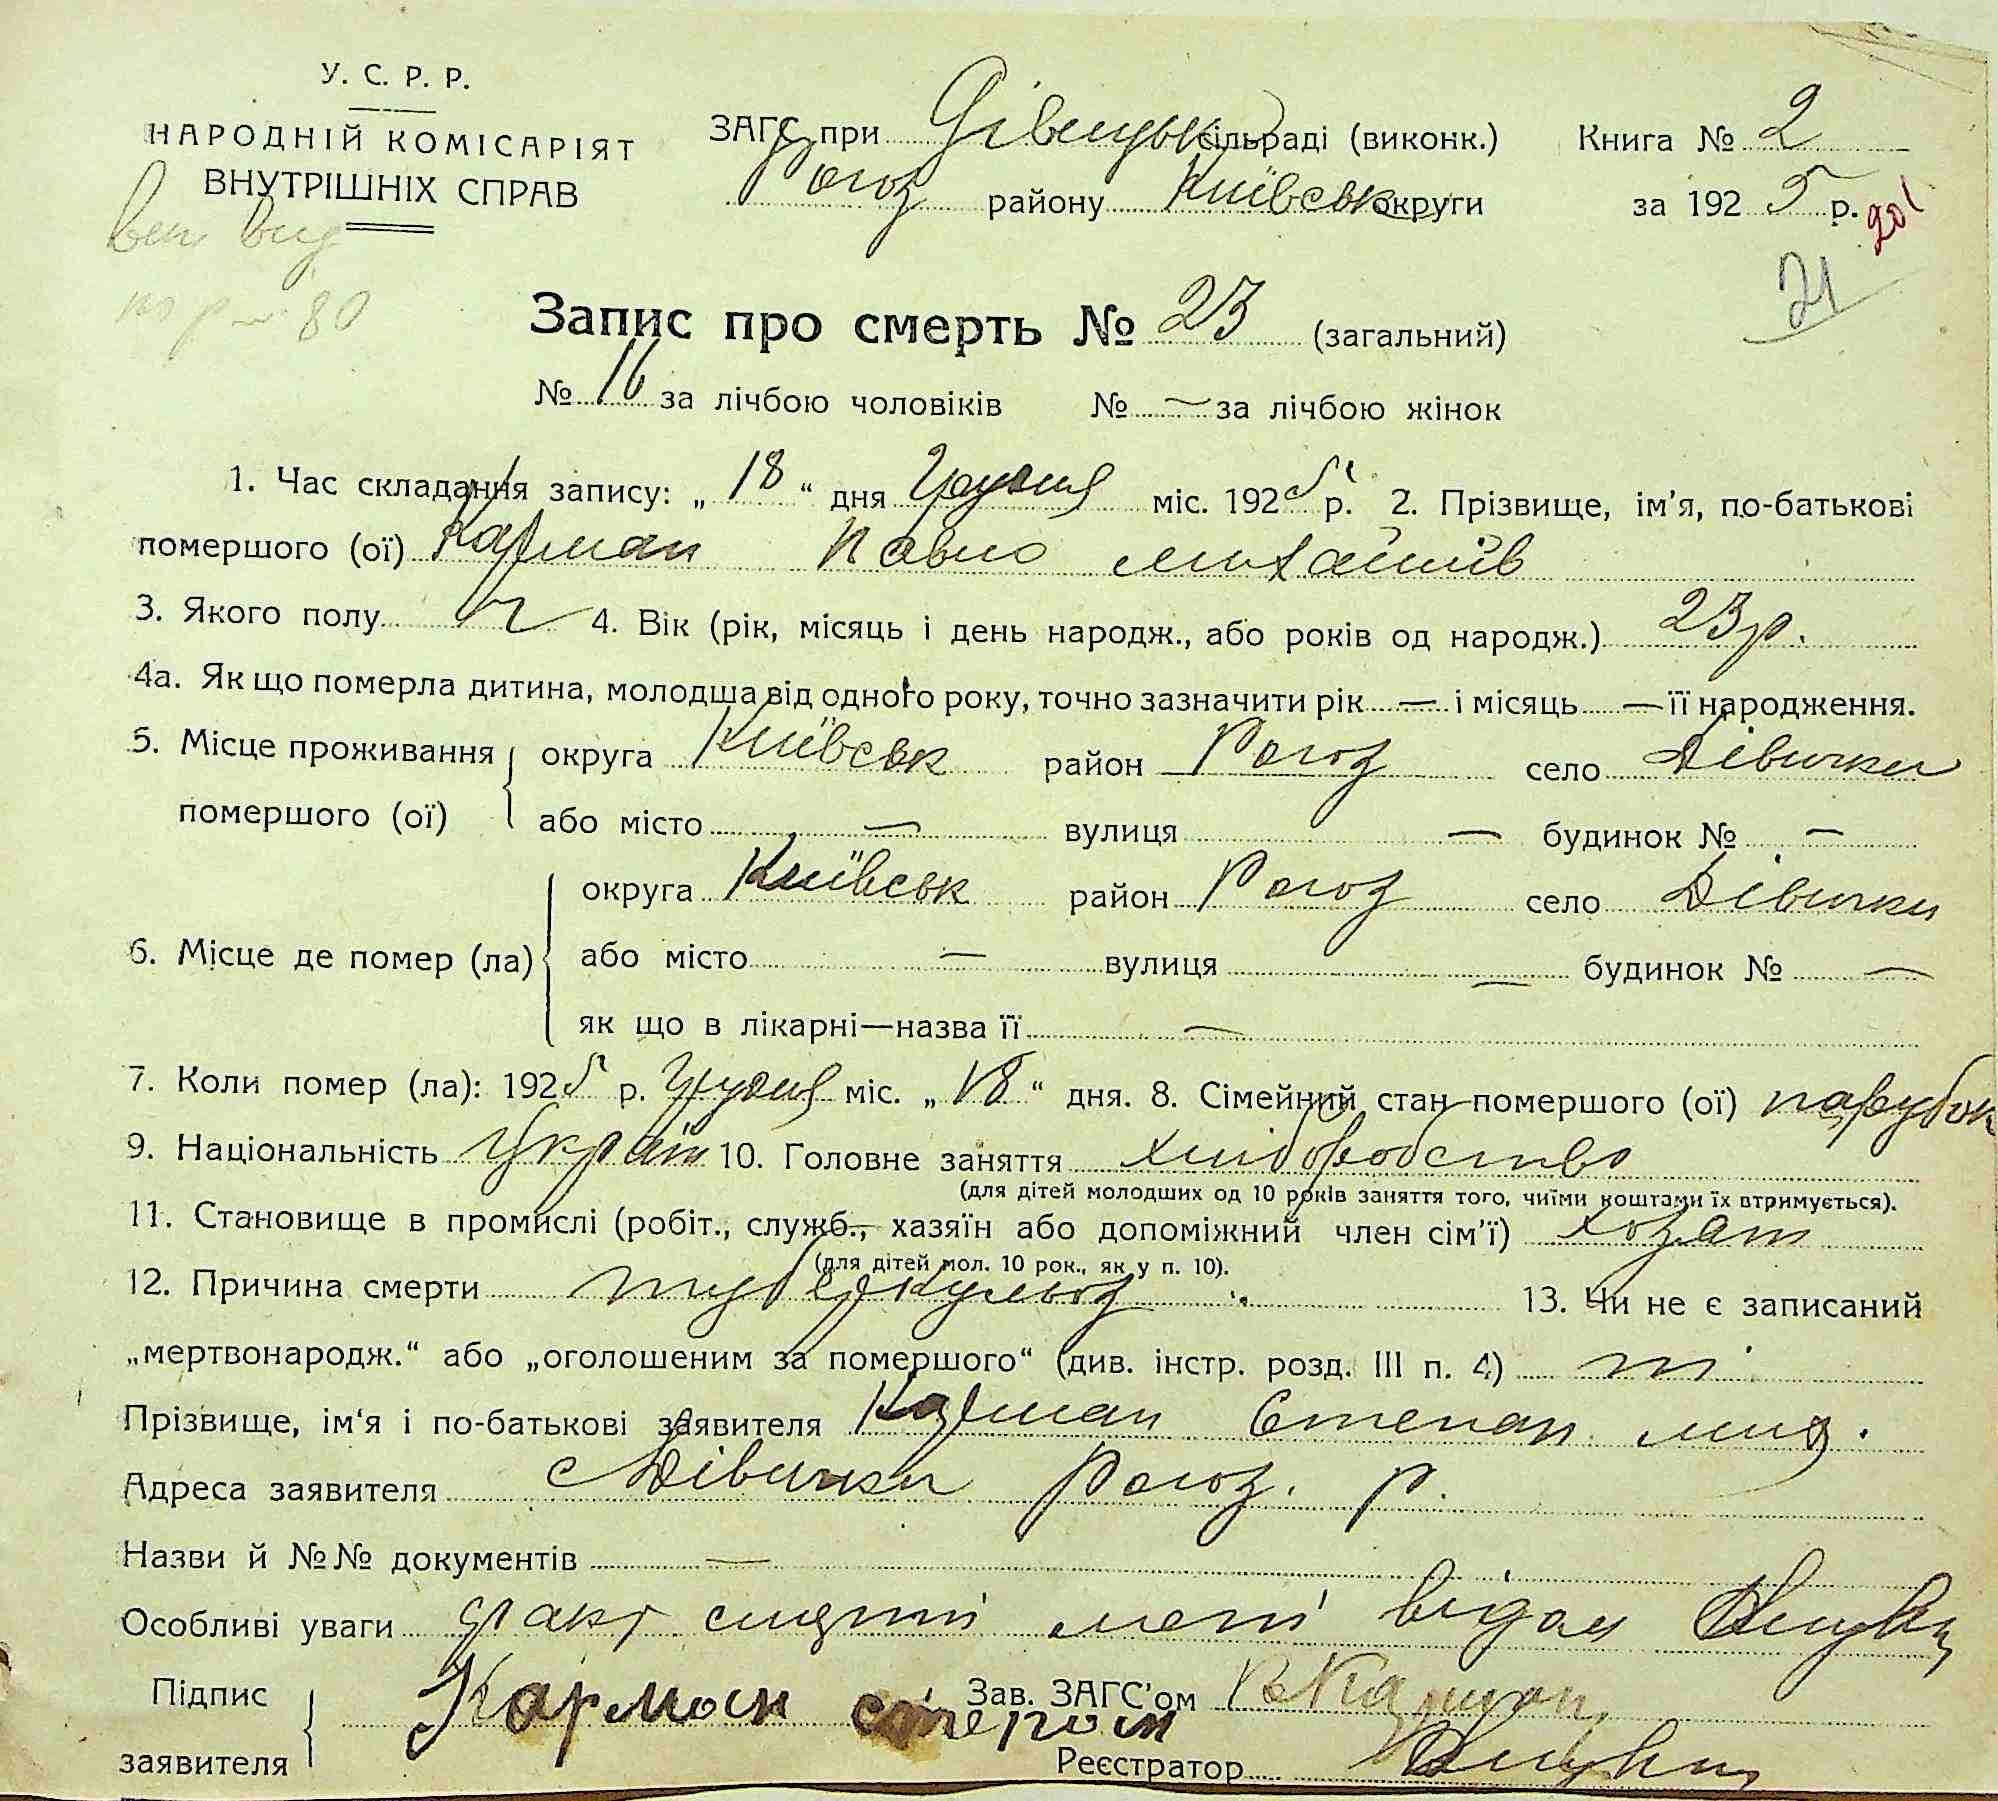 У. С. Р. Р.
НАРОДНІЙ КОМІСАРІЯТ
ВНУТРІШНІХ СПРАВ
ЗАГС при Дівицьк сільраді (виконк.) Книга № 2
Рогоз району Київськ округи за 1925 р.
201
21
80
Запис про смерть № 23 (загальний)
№ 16 за лічбою чоловіків № — за лічбою жінок
1. Час складання запису: „ 18 “ дня Грудня міс. 1925 р. 2. Прізвище, ім'я, по-батькові
помершого (ої) Карман Павло Михайлів
3. Якого полу ч 4. Вік (рік, місяць і день народж., або років од народж.) 23 р.
4а. Як що померла дитина, молодша від одного року, точно зазначити рік — і місяць — її народження.
5. Місце проживання помершого (ої) округа Київськ район Рогоз село Дівички
або місто — вулиця — будинок № —
6. Місце де помер (ла) округа Київськ район Рогоз село Дівички
або місто — вулиця — будинок № —
як що в лікарні—назва її —
7. Коли помер (ла): 1925 р. Грудня міс. „ 18 “ дня. 8. Сімейний стан помершого (ої) парубок
9. Національність Україн 10. Головне заняття хліборобство
(для дітей молодших од 10 років заняття того, чиїми коштами їх втримується).
11. Становище в промислі (робіт., служб., хазяїн або допоміжний член сім'ї)
(для дітей мол. 10 рок., як у п. 10).
12. Причина смерти туберкульоз 13. Чи не є записаний
„мертвонародж.“ або „оголошеним за помершого“ (див. інстр. розд. III п. 4) ні
Прізвище, ім'я і по-батькові заявителя Карман Степан Мих.
Адреса заявителя с Дівички Рогоз. р.
Назви й №№ документів —
Особливі уваги факт смерті мені відом
Підпис заявителя Карман Степан Зав. ЗАГС'ом
Реєстратор